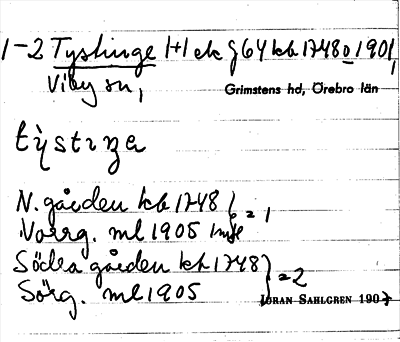 1-2 Tystinge 1+1 ek § 64 kb 1748 o 1901,
Viby sn,
Grimstens hd, Örebro län
N. gården kb 1748 } = 1
Norrg. ml 1905
Södra gården kb 1748 } = 2
Sörg. ml 1905
JÖRAN SAHLGREN 1907